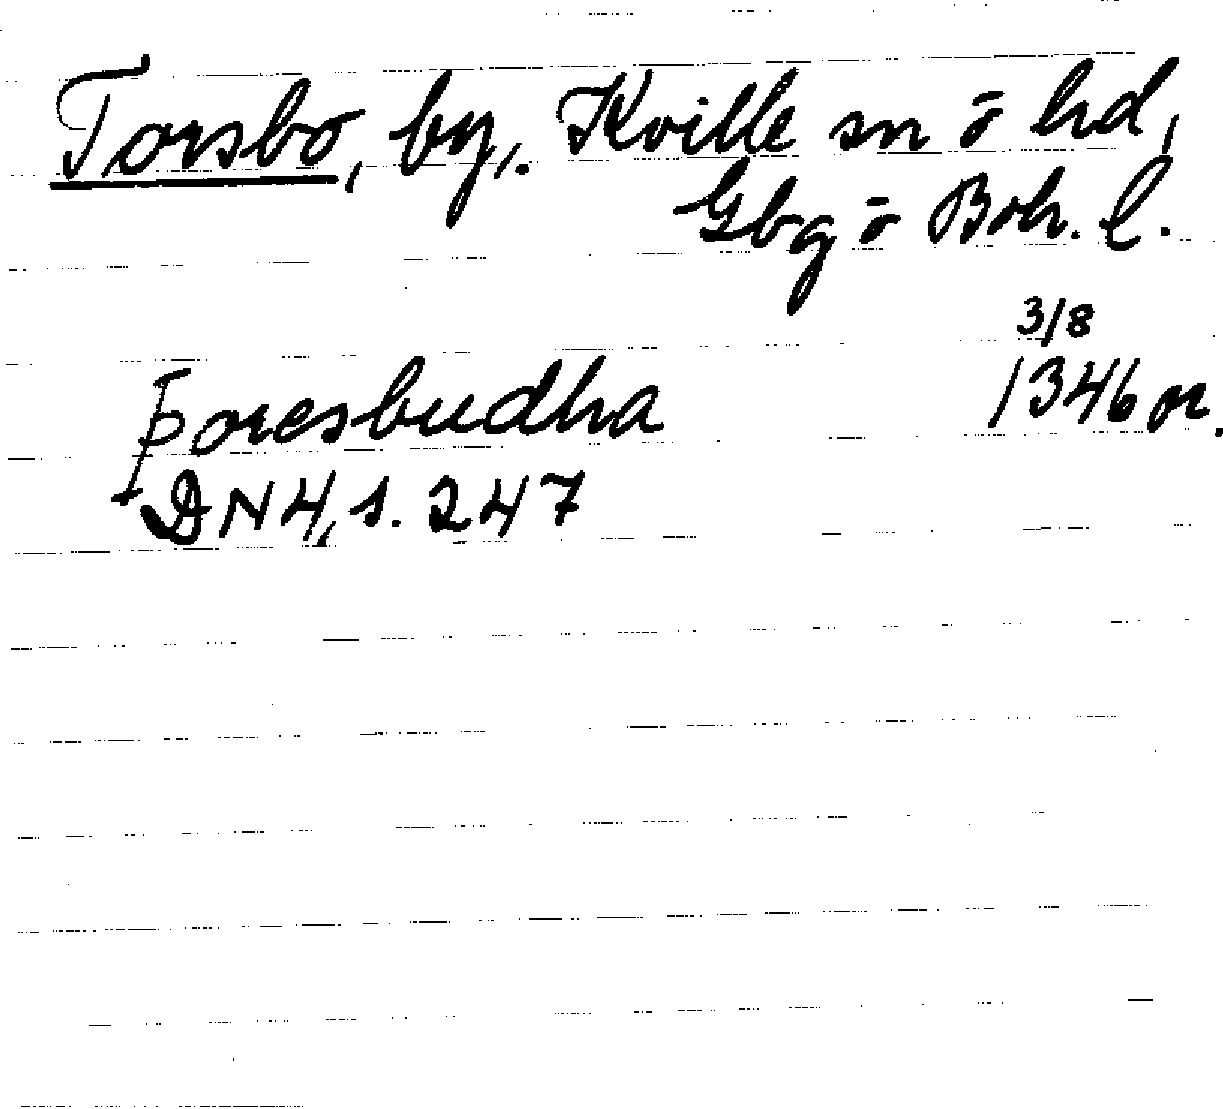 Torsbo, by, Kville sn ō hd,
Gbg ō Boh. l.
3/8
þoresbudha 1346 or.
DN 4, s. 247